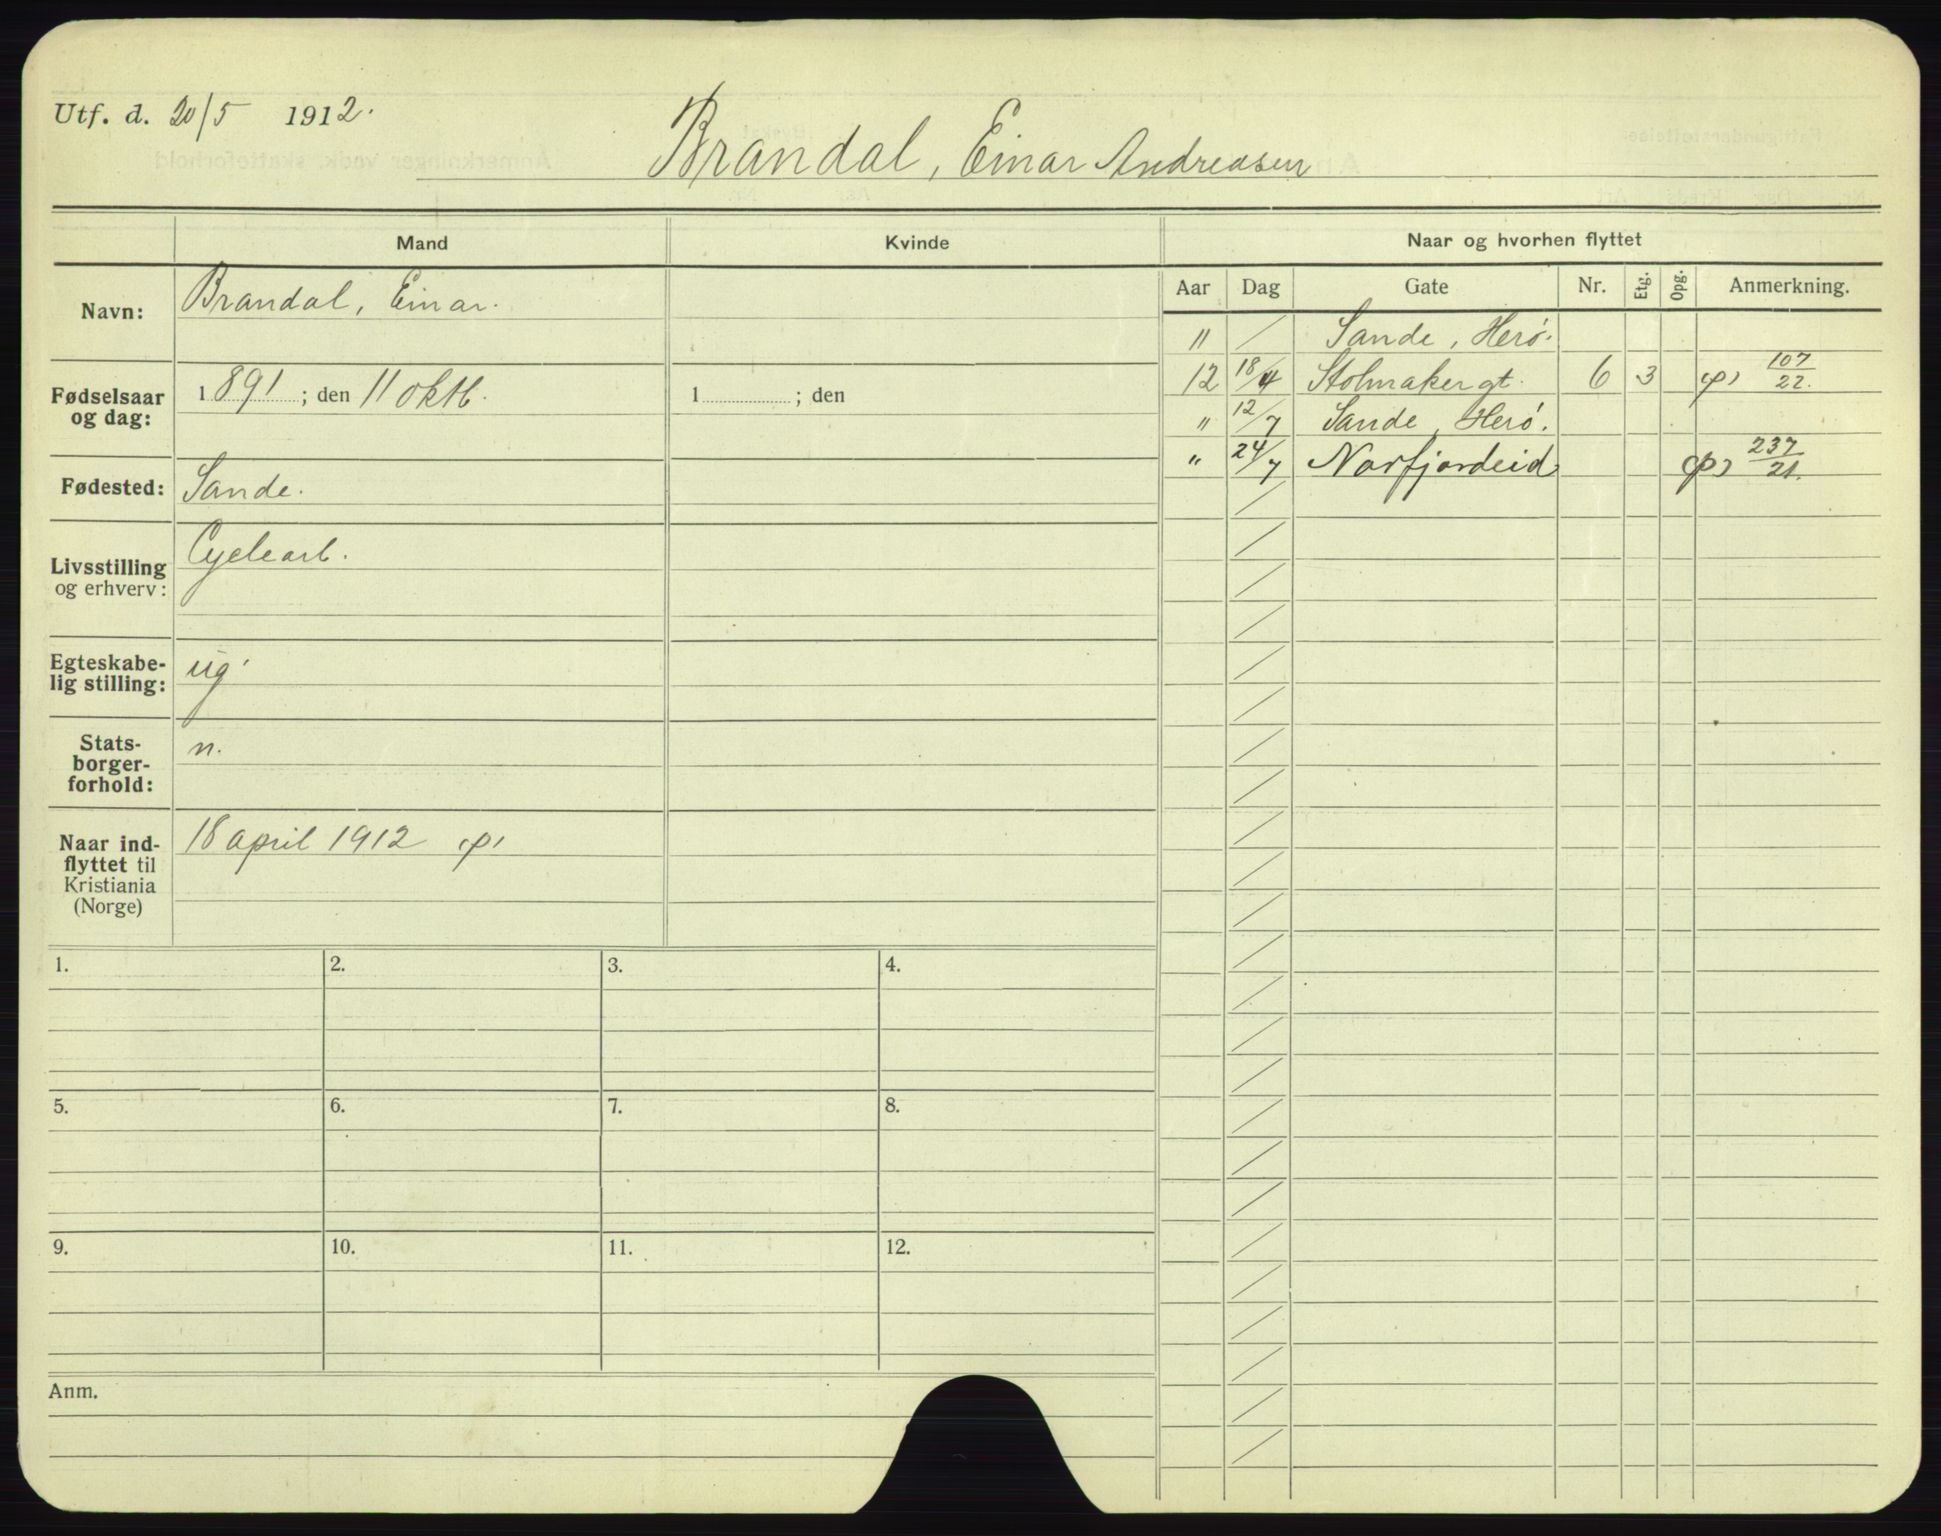 Utf. d. 20/5 1912.
Brandal, Einar Andreasen
Mand
Kvinde
Naar og hvorhen flyttet
Aar Dag Gate Nr. Etg. Opg. Anmerkning.
Navn: Brandal, Einar.
Fødselsaar og dag: 1891; den 11 oktb. 1 ; den
Fødested: Sande.
Livsstilling og erhverv: Cyclearb.
Egteskabe-
lig stilling: ug.
Stats-
borger-
forhold: n.
Naar ind-
flyttet til
Kristiania
(Norge) 18 april 1912 (p)
" / Sande, Herø.
12 18/4 Stolmakergt. 6 3 (p) 107/22.
" 12/7 Sande, Herø.
" 24/7 Norfjordeid (p) 237/21.
1. 2. 3. 4.
5. 6. 7. 8.
9. 10. 11. 12.
Anm.